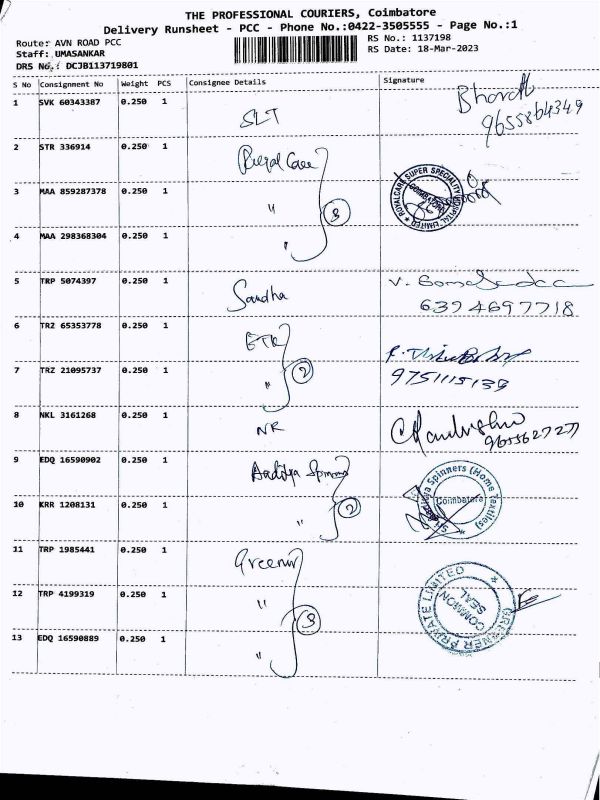 THE PROFESSIONAL COURIERS, Coimbatore
Delivery Runsheet - PCC - Phone No.:0422-3505555 - Page No.:1
Route: AVN ROAD PCC
Staff: UMASANKAR
DRS No.: DCJB113719801
RS No.: 1137198
RS Date: 18-Mar-2023
S No Consignment No Weight PCS Consignee Details Signature
1 SVK 60343387 0.250 1 SLT Bharath
9655864349
2 STR 336914 0.250 1 Royal Care
3 MAA 859287378 0.250 1 " 3 ROYALCARE SUPER SPECIALITY HOSPITAL LIMITED COIMBATORE
4 MAA 298368304 0.250 1 "
5 TRP 5074397 0.250 1 Sandha V.
6374697718
6 TRZ 65353778 0.250 1 ETK
7 TRZ 21095737 0.250 1 " 2 9751115139
8 NKL 3161268 0.250 1 NR
9655627277
9 EDQ 16590902 0.250 1 Aaditya Spinners Spinners (Home Textiles) Coimbatore
10 KRR 1208131 0.250 1 " 2
11 TRP 1985441 0.250 1 Greener
12 TRP 4199319 0.250 1 " 3 GREENER PRIVATE LIMITED COMMON SEAL
13 EDQ 16590889 0.250 1 "